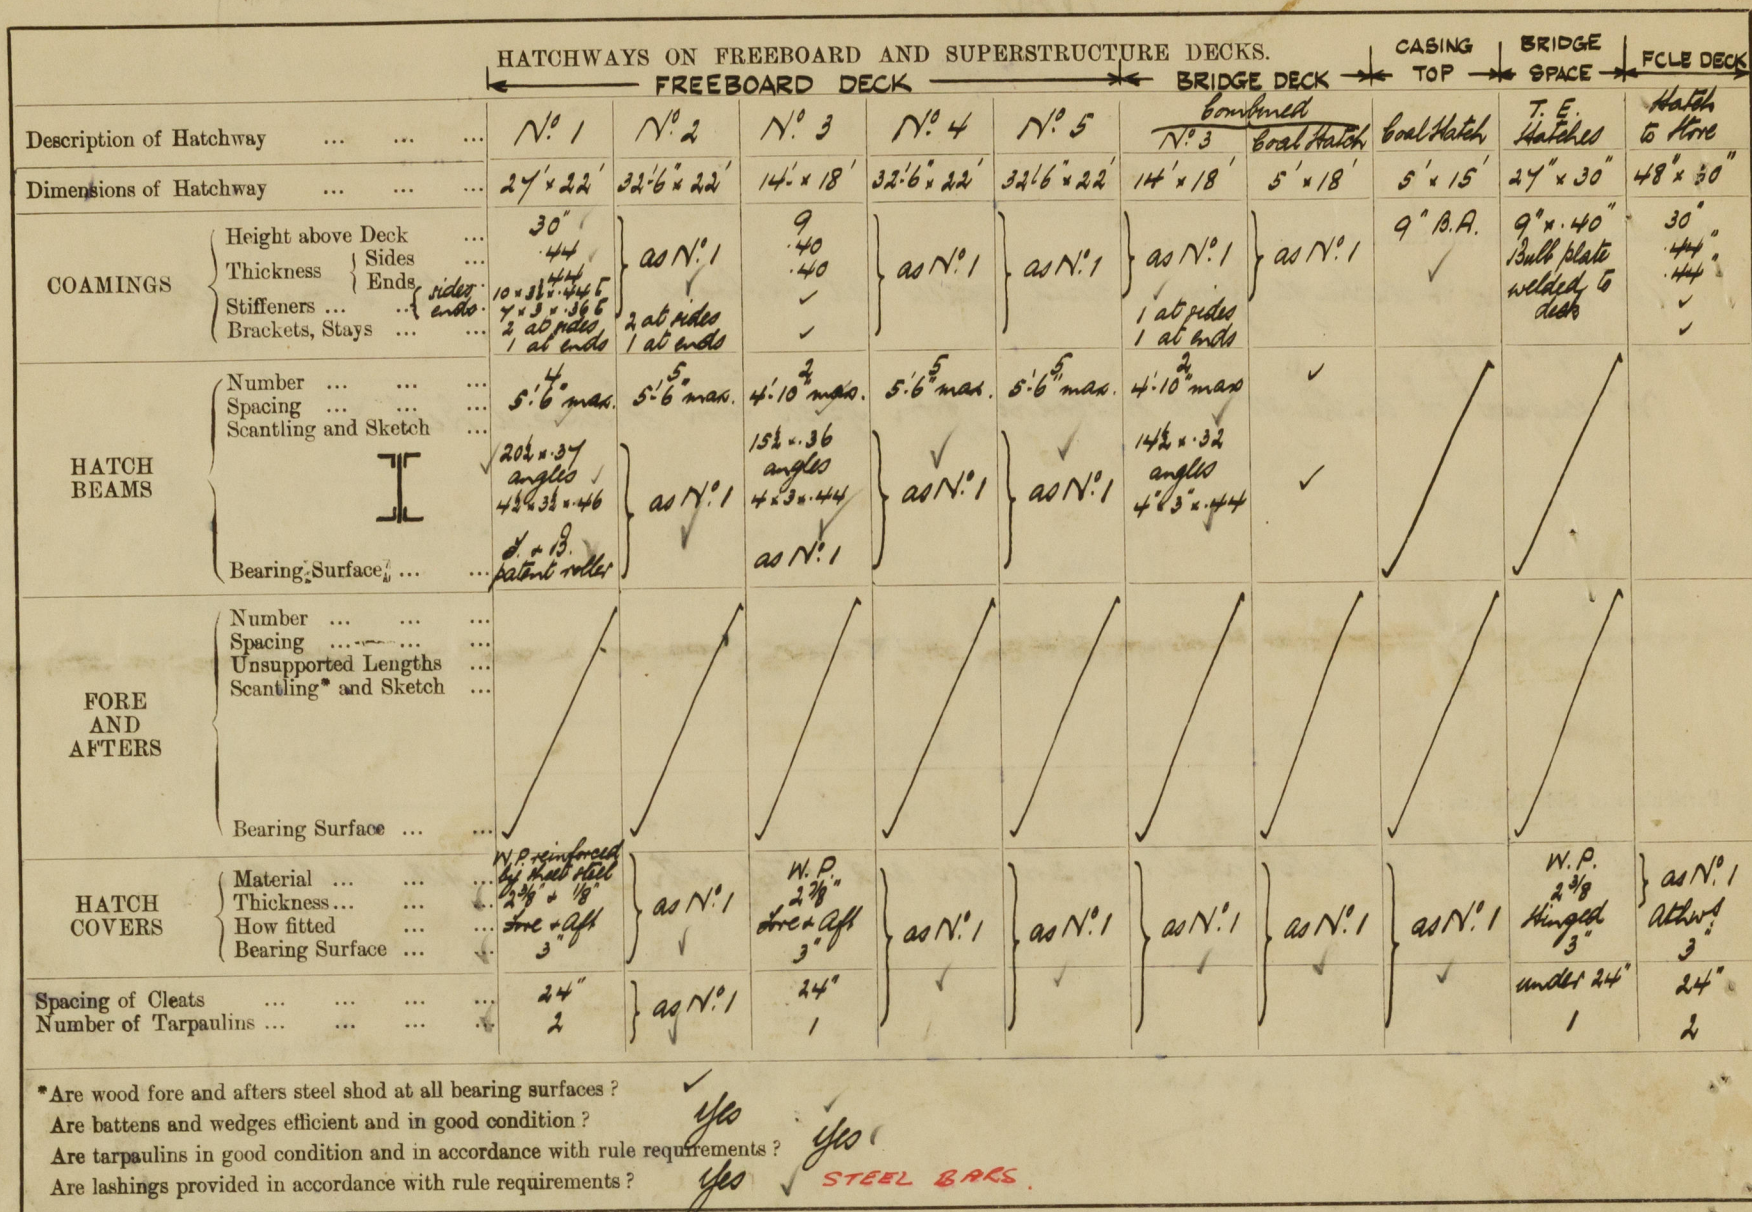 HATCHWAYS ON FREEBOARD AND SUPERSTRUCTURE DECKS.
FREEBOARD DECK BRIDGE DECK CASING TOP BRIDGE SPACE FCLE DECK
Description of Hatchway ... ... ... Nº 1 Nº 2 Nº 3 Nº 4 Nº 5 Combined Nº 3 Coal Hatch Coal Hatch T. E. Hatches Hatch to Store
Dimensions of Hatchway ... ... ... 27' × 22' 32'-6" × 22' 14'- × 18' 32'-6" × 22' 32'-6" × 22' 14' × 18' 5' × 18' 5' × 15' 27" × 30" 48" × 30"
COAMINGS
Height above Deck ... 30" } as Nº 1 9 } as Nº 1 } as Nº 1 } as Nº 1 } as Nº 1 9" B.A. 9" × .40" 30"
Thickness { Sides ... .44 .40 Bulb plate .44"
Ends .44 .40 ✓ welded to .44"
Stiffeners ... { sides 10 × 3½ × .44 ✓ deck ✓
ends 7 × 3 × .36
Brackets, Stays ... ... 2 at sides 2 at sides ✓ 1 at sides ✓
1 at ends 1 at ends 1 at ends
HATCH BEAMS
Number ... ... ... 4 5 2 5 5 2 ✓
Spacing ... ... ... 5'-6" max. 5'-6" max. 4'-10" max. 5'-6" max. 5'-6" max. 4'-10" max
Scantling and Sketch ...
20½ × .37 15½ × .36 14½ × .32
angles angles angles
4½ × 3½ × .46 } as Nº 1 4 × 3 × .44 } as Nº 1 } as Nº 1 4" × 3" × .44 ✓
& B.
Bearing Surface, ... ... patent roller as Nº 1
FORE AND AFTERS
Number ... ... ...
Spacing ... ... ...
Unsupported Lengths ...
Scantling* and Sketch ...
Bearing Surface ... ...
HATCH COVERS
Material ... ... ... W.P. reinforced by sheet steel } as Nº 1 W. P. } as Nº 1 } as Nº 1 } as Nº 1 } as Nº 1 } as Nº 1 W. P. } as Nº 1
Thickness ... ... ... 2 3/8" & 1/8" 2 7/8" 2 3/8
How fitted ... ... fore & aft fore & aft Hinged Athwt
Bearing Surface ... ... 3" 3" 3" 3"
Spacing of Cleats ... ... ... ... 24" } as Nº 1 24" under 24" 24"
Number of Tarpaulins ... ... ... ... 2 1 1 2
*Are wood fore and afters steel shod at all bearing surfaces ? ✓
Are battens and wedges efficient and in good condition ? Yes
Are tarpaulins in good condition and in accordance with rule requirements ? Yes
Are lashings provided in accordance with rule requirements ? Yes ✓ STEEL BARS.